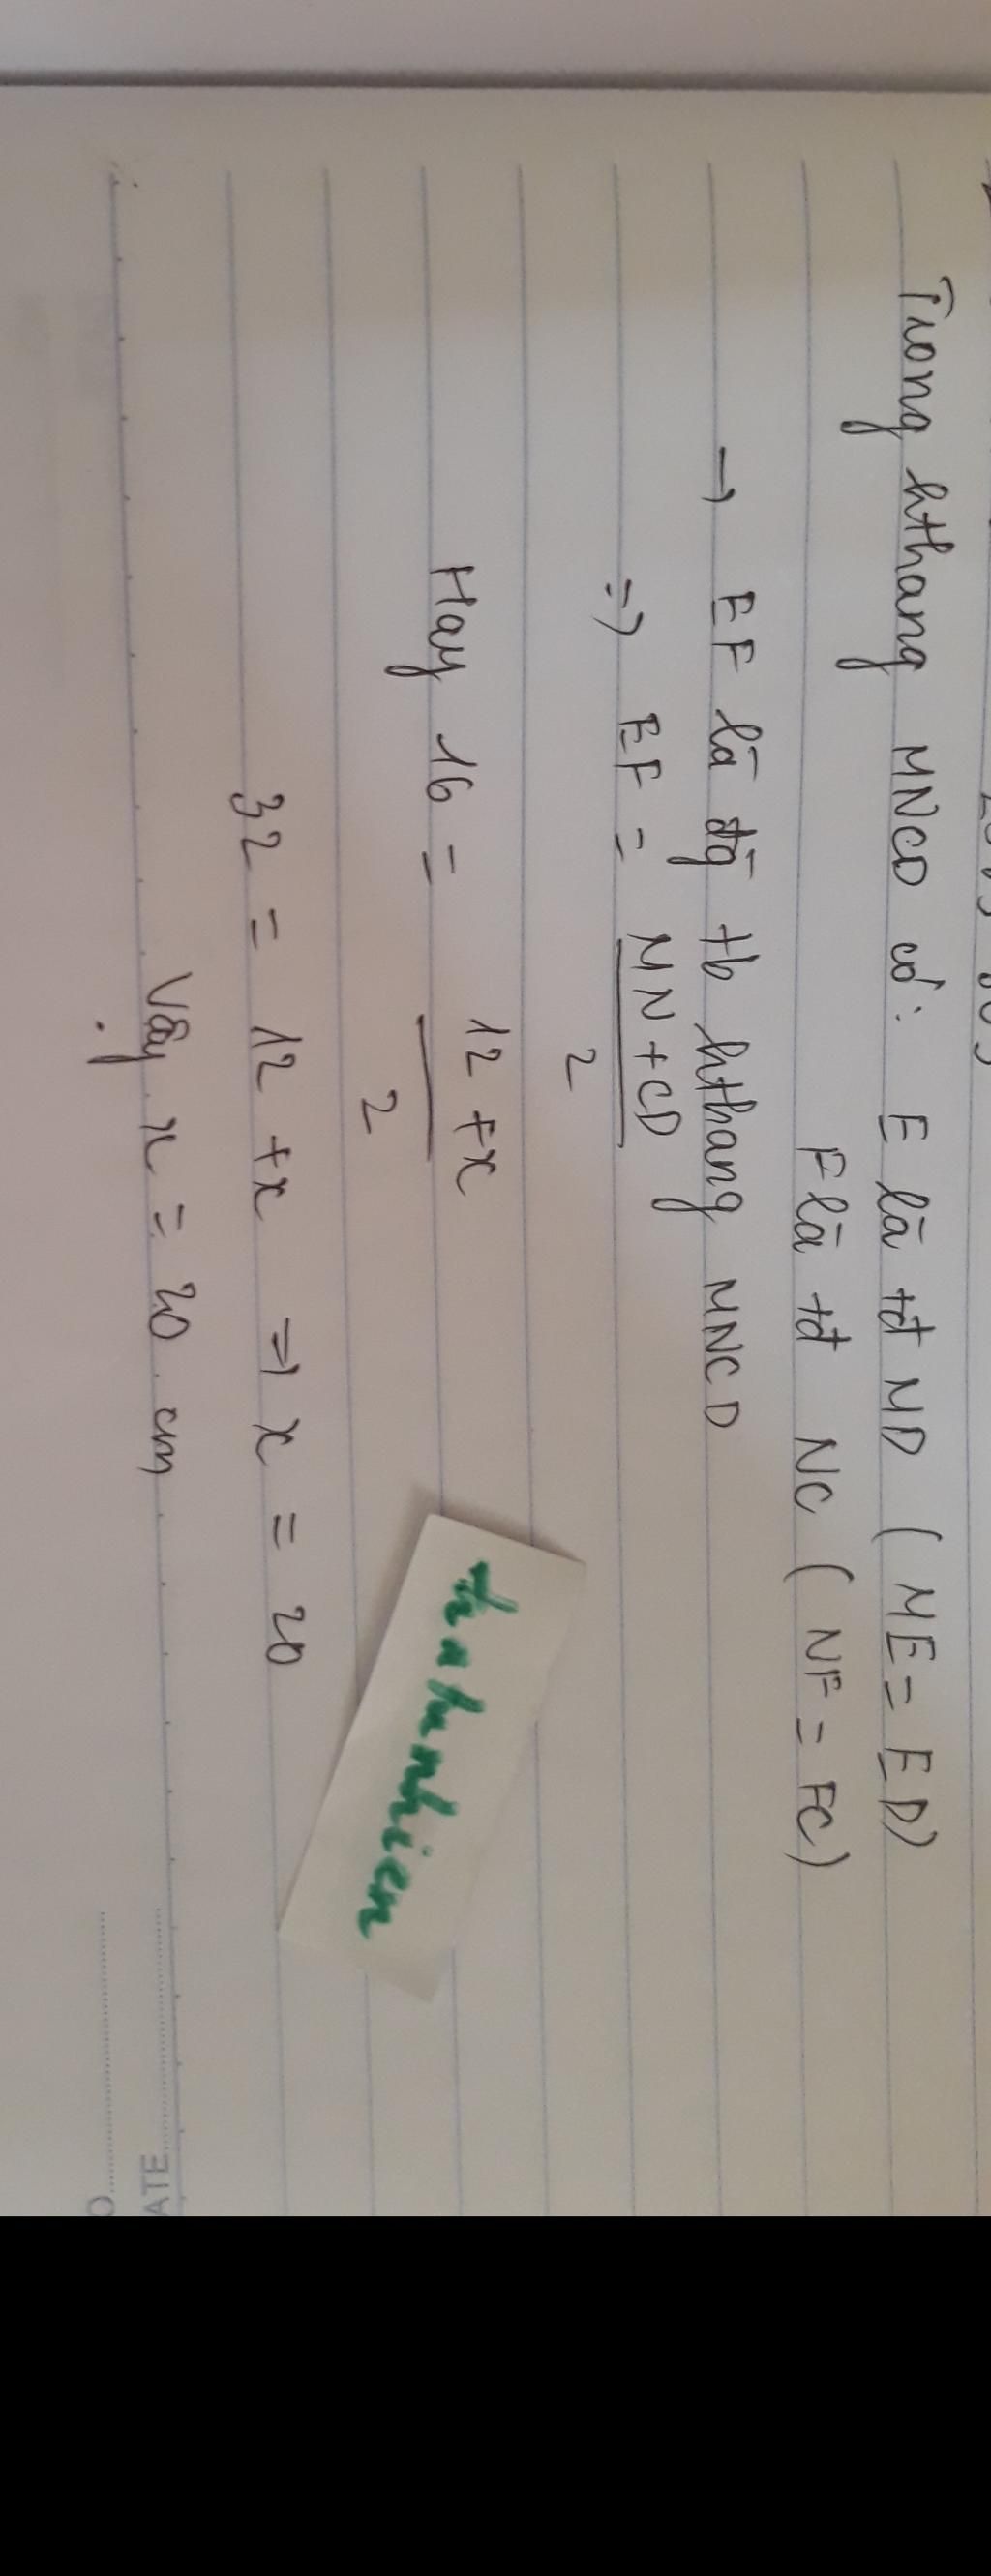 Trong hthang MNCD có: E là tđ MD ( ME = ED)
F là tđ NC ( NF = FC)
→ EF là đg tb hthang MNCD
=> EF = MN + CD
2
Hay 16 = 12 + x
2
32 = 12 + x => x = 20
Vậy x = 20 cm
hahunhien
ATE
O